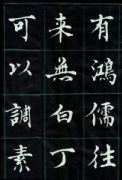 有鴻儒往
来無白丁
可以調素